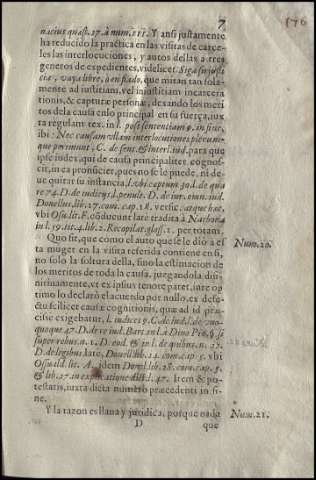 7
176
nacius quæst. 17. à num. 111. Y ansi justamente
ha reducido la practica en las visitas de carce-
les las interlocuciones, y autos dellas a tres
generos de expedientes, videlicet. Siga su justi
cia, vaya libre, ò en fiado, que miran tan sola-
mente ad iustitiam, vel iniustitiam incarcera
tionis, & capturæ personæ, dexando los meri
tos dela causa enlo principal en su fuerça, iux
ta regulam tex. in l. post sententiam 9. in fine,
ibi: Nec causam ullam interlocutiones plerum-
que perimunt, C. de sent. & interl. iud. para que
ipse iudex, qui de causa principaliter cognos-
cit, in ea pronuncier, pues no se le puede, ni de-
ue quitar su instancia, l. ubi cæptum
re 74. D. de iudicijs l. penult. D. de iur. omn. iud.
Donellus, lib. 17. com. cap. 18. versic. atque hæc,
vbi Osu. lit. F. cõducunt late tradita à Narbona
in l. 19. tit. 4. lib. 2. Recopilat. gloss. 1. per totam.
Quo fit, que como el auto que se le dio a es
ta muger en la visita referida contiene en si,
no solo la soltura della, sino la estimacion de
los meritos de toda la causa, juzgandola di-
finitiuamente, vt ex ipsius tenore patet, iure op
timo lo declarò el acuerdo por nullo, ex defe-
ctu scilicet causæ cognitionis, quæ ad id præ-
cise exigebatur, l. iudices 9. C. de iud. l. de vno-
quoque 47. D. de re iud. Bart. in l. à Diuo Pio, §. si
super rebus n. 1. D. eod. & in l. de quibus n. 22.
D. de legibus late, Donell. lib. 14. com. cap. 5. vbi
Osuald. lit. A. idem Donel. lib. 28. com. cap. 5.
& lib. 27. in explicatione dict. l. 47. Item & po-
testatis, iuxta dicta numero præcedenti in fi-
ne.
Y la razon es llana y juridica, porque nada
D
que
Num. 20.
Num. 21.